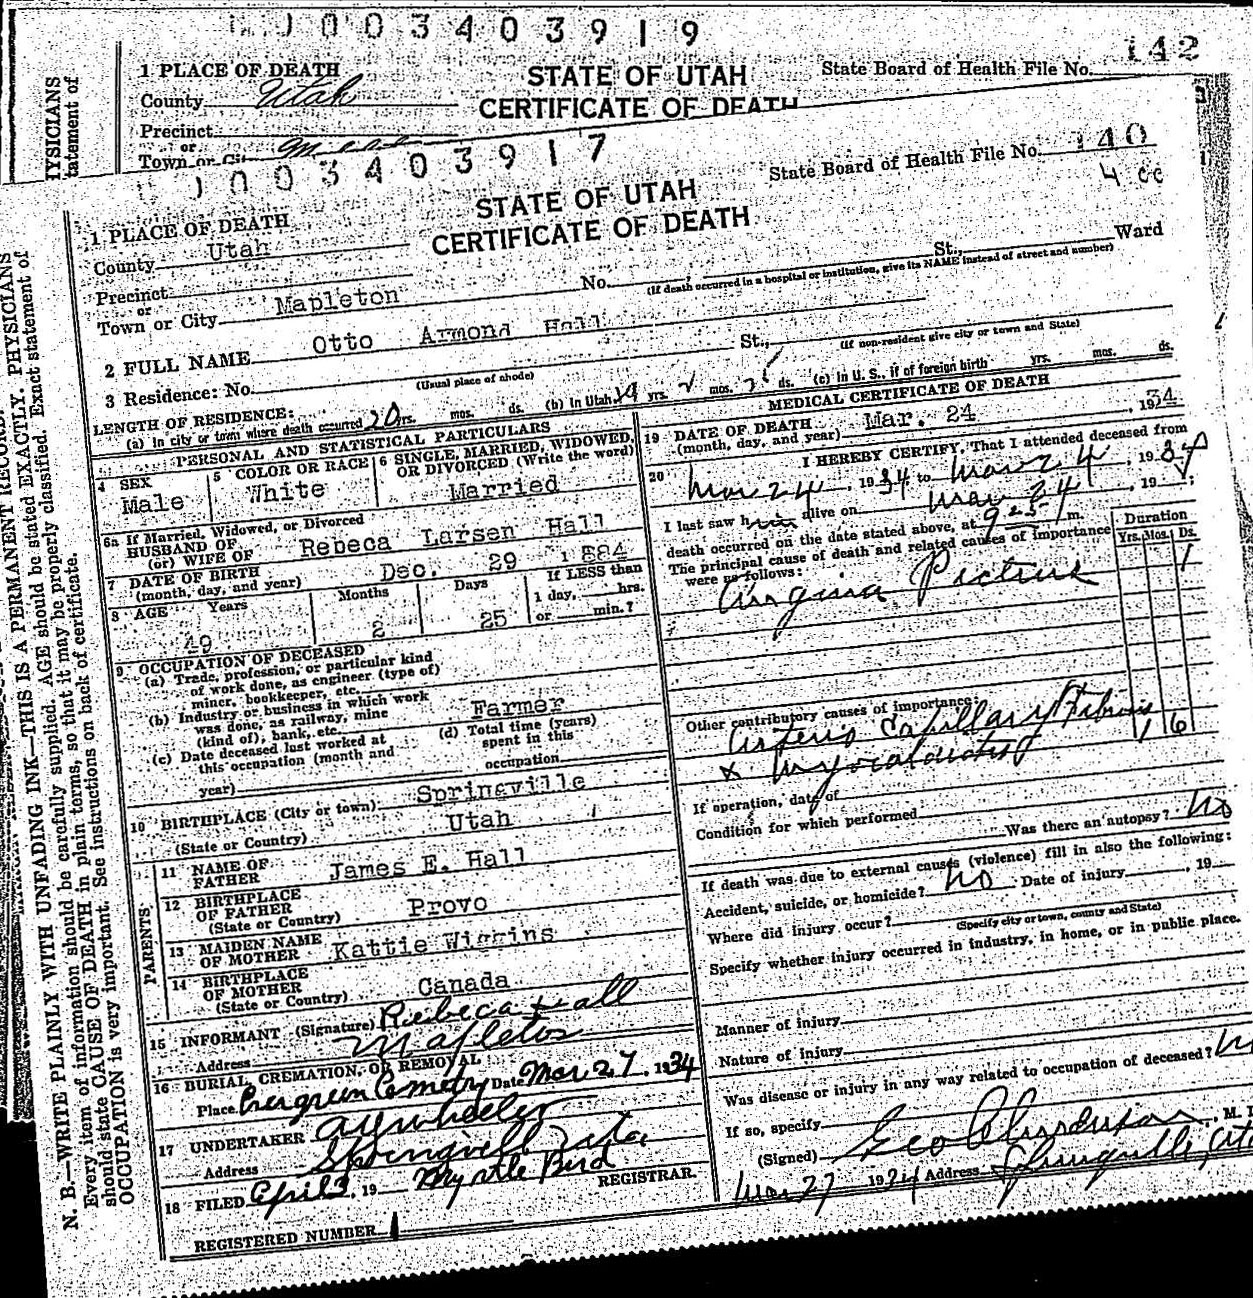 0 0 3 4 0 3 9 1 9
142
1 PLACE OF DEATH
STATE OF UTAH
State Board of Health File No.
County Utah
CERTIFICATE OF DEATH
Precinct
or
Town or City
YSICIANS
tatement of
0 0 3 4 0 3 9 1 7
STATE OF UTAH
State Board of Health File No. 140
4 cc
1 PLACE OF DEATH
CERTIFICATE OF DEATH
County Utah
Precinct
or
No. St., Ward
(If death occurred in a hospital or institution, give its NAME instead of street and number)
Town or City Mapleton
2 FULL NAME Otto Armond Hall
3 Residence: No. St.,
(Usual place of abode)
(If non-resident give city or town and State)
LENGTH OF RESIDENCE:
(a) In city or town where death occurred 20 yrs. mos. ds. (b) In Utah yrs. mos. ds. (c) In U. S., if of foreign birth yrs. mos. ds.
PERSONAL AND STATISTICAL PARTICULARS
4 SEX
Male
5 COLOR OR RACE
White
6 SINGLE, MARRIED, WIDOWED,
OR DIVORCED (Write the word)
Married
6a If Married, Widowed, or Divorced
HUSBAND OF
(or) WIFE OF Rebeca Larsen Hall
7 DATE OF BIRTH
(month, day, and year) Dec. 29 1884
8 AGE Years Months Days
If LESS than
1 day, hrs.
or min.?
49 2 25
9 OCCUPATION OF DECEASED
(a) Trade, profession, or particular kind
of work done, as engineer (type of)
miner, bookkeeper, etc.
(b) Industry or business in which work
was done, as railway, mine
(kind of), bank, etc. Farmer
(c) Date deceased last worked at
this occupation (month and
year)
(d) Total time (years)
spent in this
occupation
10 BIRTHPLACE (City or town) Springville
(State or Country) Utah
PARENTS
11 NAME OF
FATHER James E. Hall
12 BIRTHPLACE
OF FATHER Provo
(State or Country)
13 MAIDEN NAME
OF MOTHER Kattie Wiggins
14 BIRTHPLACE
OF MOTHER Canada
(State or Country)
15 INFORMANT (Signature) Rebeca Hall
Address Mapleton
16 BURIAL, CREMATION, OR REMOVAL
Place Evergreen Cemetry Date Mar 27, 1934
17 UNDERTAKER A Y Wheeler
Address Springvill Uta
18 FILED April 3, 19 Myrtle Bird REGISTRAR.
REGISTERED NUMBER 1
MEDICAL CERTIFICATE OF DEATH
19 DATE OF DEATH
(month, day, and year) Mar. 24 , 1934
20 I HEREBY CERTIFY, That I attended deceased from
Mar 24 , 1934 to Mar 24 , 1934
I last saw him alive on Mar 24 , 19 ;
death occurred on the date stated above, at 9 25 m.
The principal cause of death and related causes of importance
were as follows:
Duration
Yrs. Mos. Ds.
Angina Picture 1
Other contributory causes of importance:
Arterio Capillary Fibrosis
& Myocarditis 1 6
If operation, date of
Condition for which performed
Was there an autopsy? No
If death was due to external causes (violence) fill in also the following:
Accident, suicide, or homicide? No Date of injury , 19
Where did injury occur?
(Specify city or town, county and State)
Specify whether injury occurred in industry, in home, or in public place.
Manner of injury
Nature of injury
Was disease or injury in any way related to occupation of deceased?
If so, specify
(Signed) Geo Anderson , M.
Mar 27 1934 Address Springville,
N. B.—WRITE PLAINLY WITH UNFADING INK—THIS IS A PERMANENT RECORD. PHYSICIANS
Every item of information should be carefully supplied. AGE should be stated EXACTLY.
should state CAUSE OF DEATH in plain terms, so that it may be properly classified. Exact statement of
OCCUPATION is very important. See instructions on back of certificate.